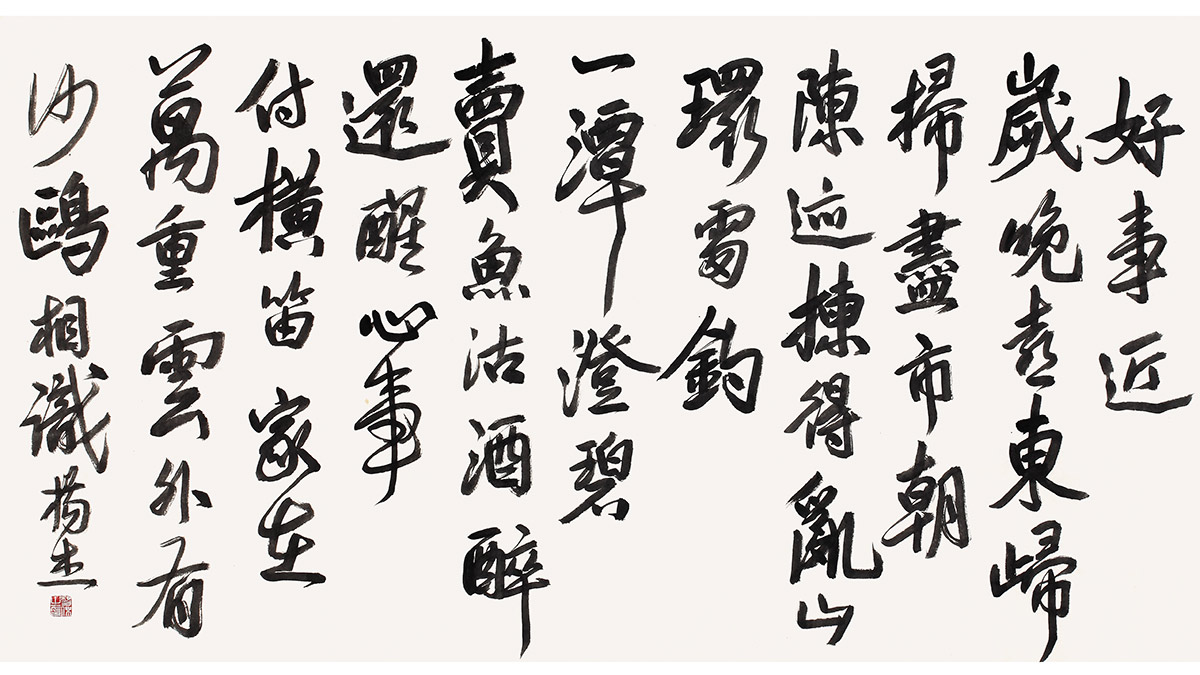 好事近
歲晚喜東歸
掃盡市朝
陳迹揀得亂山
環處釣
一潭澄碧
賣魚沽酒醉
還醒心事
付橫笛家在
萬重雲外有
沙鷗相識楊杰